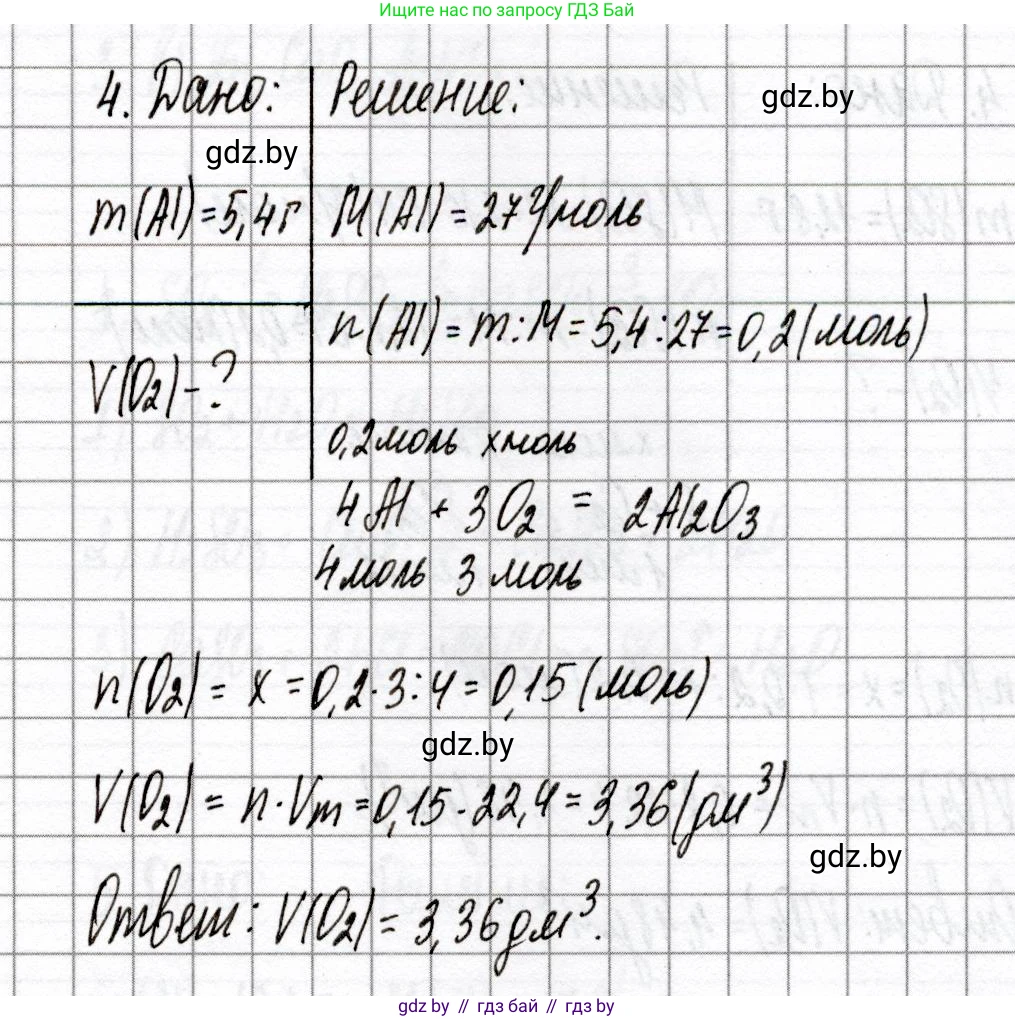 Ищите нас по запросу ГДЗ Бай
4. Дано: Решение.
gdz.by
gdz.by
m(Al)=5,4г M(Al)=27г/моль
n(Al)=m:M=5,4:27=0,2(моль)
V(O₂)-?
0,2моль xмоль
4Al + 3O₂ = 2Al₂O₃
4моль 3моль
n(O₂)= x=0,2·3:4=0,15(моль)
gdz.by
V(O₂)= n·Vm=0,15·22,4=3,36(дм³)
gdz.by
Ответ: V(O₂)= 3,36дм³.
gdz.by // гдз бай // гдз.by